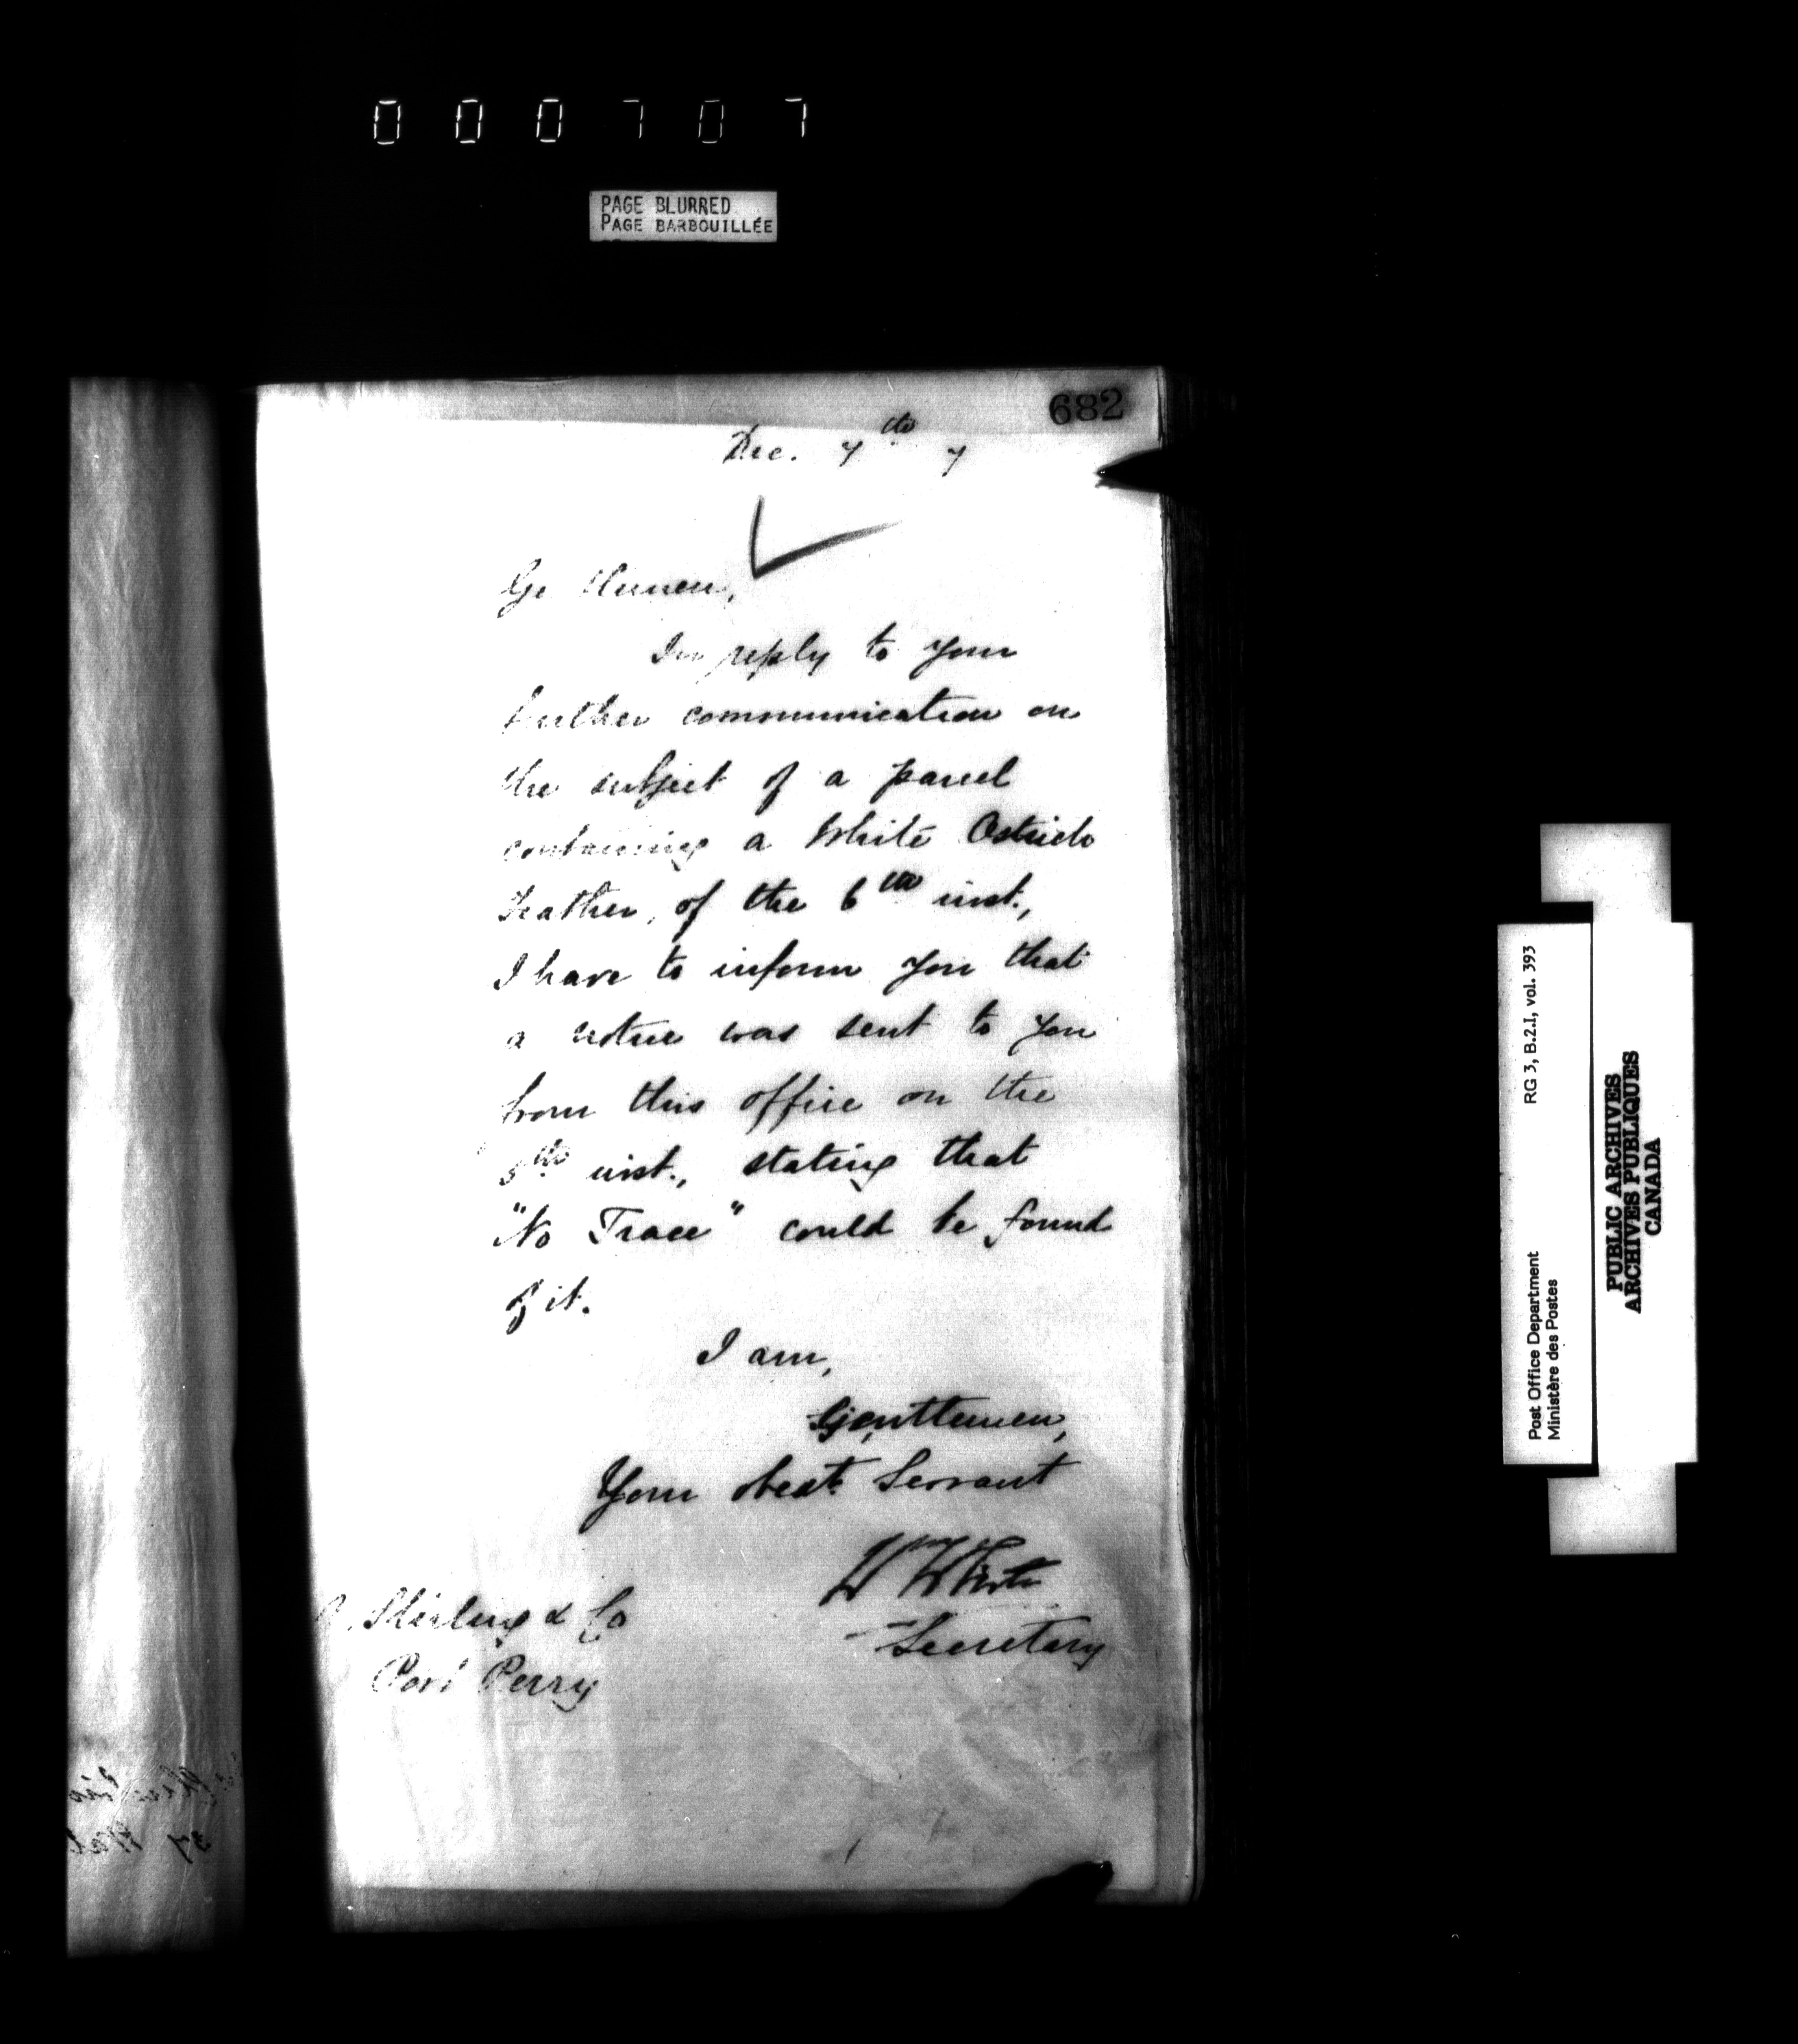 000707
PAGE BLURRED
PAGE BARBOUILLÉE
682
Dec. 7th 7
Gentlemen,
In reply to your
further communication on
the subject of a parcel
containing a White Ostrich
Feather, of the 6th inst.,
I have to inform you that
a notice was sent to you
from this office on the
5th inst., stating that
"No Trace" could be found
of it.
I am,
Gentlemen,
Your obedt. Servant
Wm White
Secretary
& Co
Port Perry
Post Office Department
Ministère des Postes
RG 3, B.2.I, vol. 393
PUBLIC ARCHIVES
ARCHIVES PUBLIQUES
CANADA